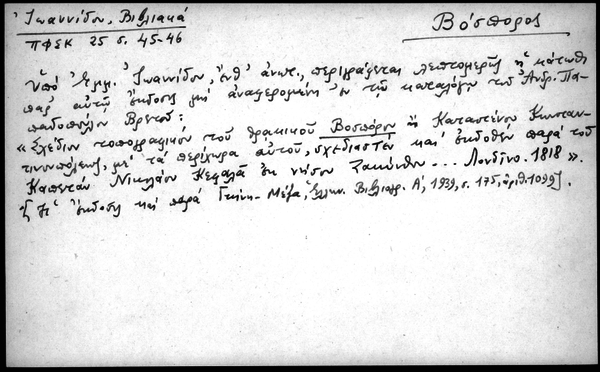 Ἰωαννίδου, Βιβλιακά
Βόσπορος
ΠΦΣΚ 25 σ. 45-46
Ὑπό Ἐμμ. Ἰωαννίδου, ἔνθ' ἀνωτ., περιγράφεται λεπτομερῶς ἡ κάτωθι
παρ' αὐτῷ ἔκδοσις μή ἀναφερομένη ἐν τῷ καταλόγῳ τοῦ Ἀνδρ. Πα-
παδοπούλου Βρετοῦ:
« Σχέδιον τοπογραφικόν τοῦ θρακικοῦ Βοσπόρου ἤ Καταστένου Κωνσταν-
τινουπόλεως, μέ τά περίχωρα αὐτοῦ, σχεδιασθέν καί ἐκδοθέν παρά τοῦ
Καπετάν Νικολάου Κεφαλᾶ ἐκ νήσου Ζακύνθου ... Λονδίνο. 1818 ».
ἔκδοσις καί παρά Γκίνη-Μέξα, Ἑλλην. Βιβλιογρ. Α', 1939, σ. 175, ἀριθ. 1099].